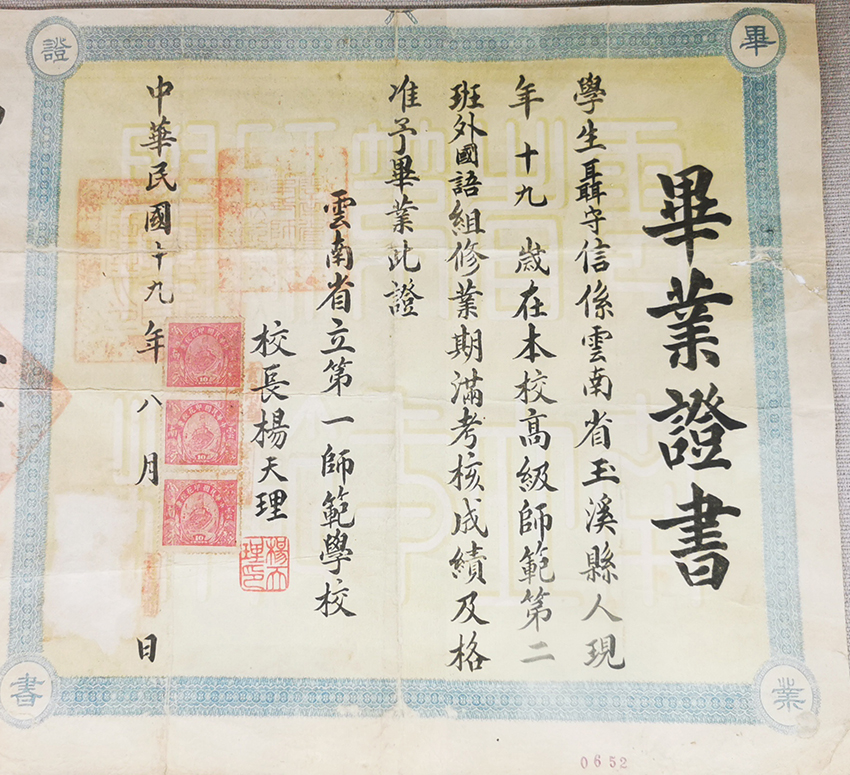 畢業證書
學生聶守信係雲南省玉溪縣人現
年十九歲在本校高級師範第二
班外國語組修業期滿考核成績及格
准予畢業此證
雲南省立第一師範學校
校長楊天理
楊天理印
中華民國十九年八月日
畢
業
證
書
0652